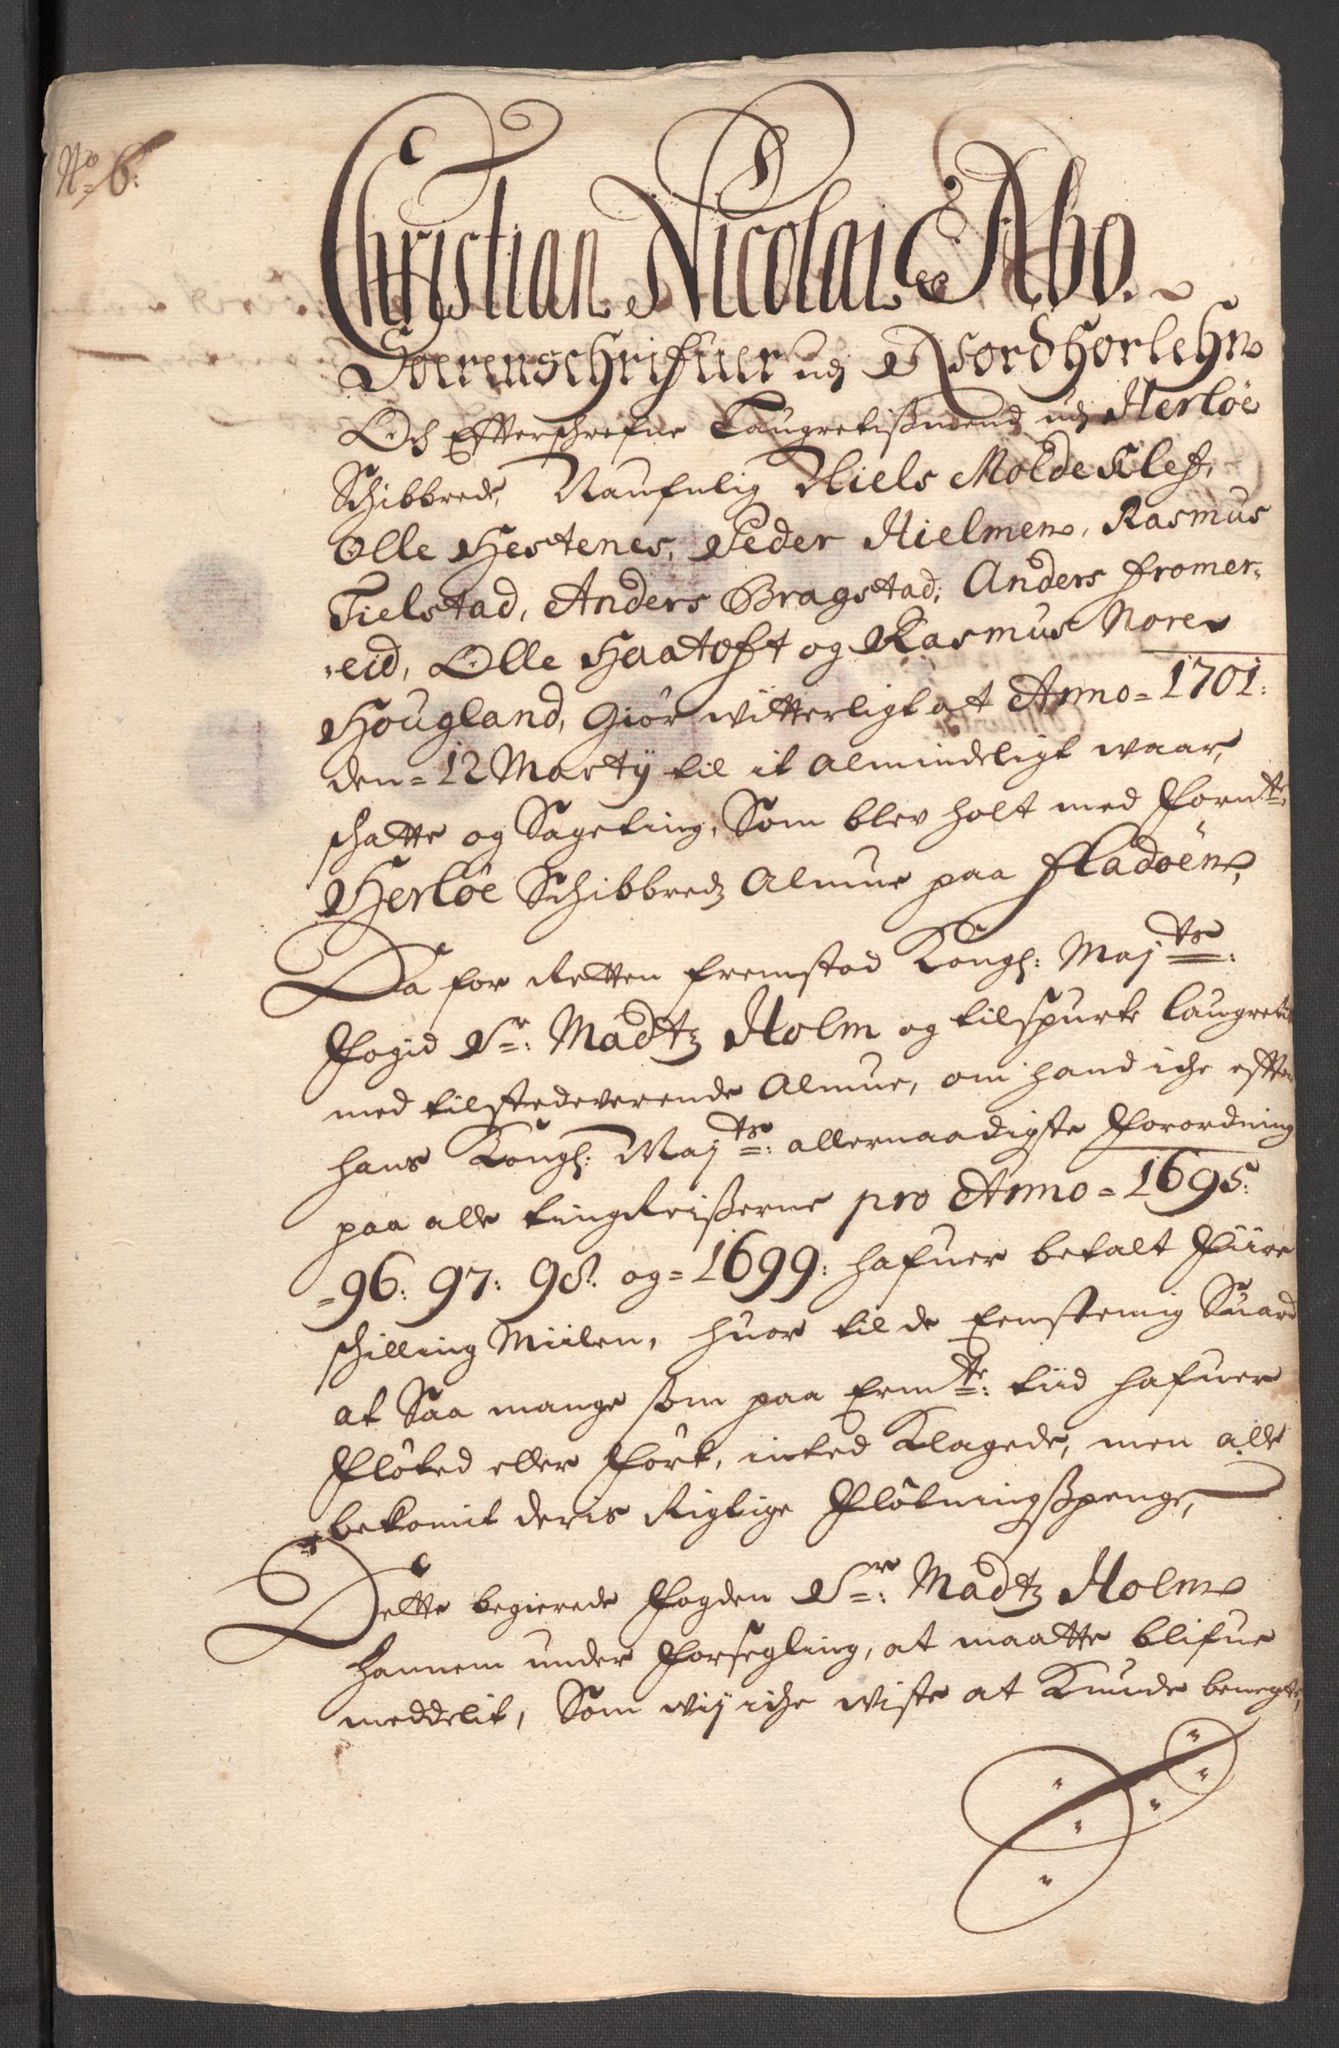 No 6:
Christian Nicolai Abo.
Soerenschrifuer udj Nordhorlehn
Och Effterschrefne Laugretismend udj Herløe
Schibbrede, Naufnlig Niels Molde Klef,
Olle Hestenes, Peder Hielmen, Rasmus
Tielstad, Anders Bragstad, Anders fromer-
:eid, Olle Haatoft og Rasmus Nore
Hougland, Giør witterligt at Anno = 1701:
den = 12 Martij til it almindeligt waar,
schatte og Sageting, Som blev holt med forn.te
Herløe Schibbredz Almue paa Fladøen,
Da for Retten fremstod Kongl: Maj.ts:
fogid Sr: Madtz Holm og tilspurte laugrettet
med tilstedeverende Almue, om hand iche efter
hans Kongl: Maj.ts: allernaadigste forordning
paa alle tingReiserne pro Anno = 1695:
= 96: 97: 98: og = 1699: hafuer betalt fiire
schilling Miilen, huor til de Eenstemig Suared
at Saa mange som paa Erm.te: tiid hafuer
fløted eller ført, inted Klagede, men alle
bekomit deris Rigtige fløtningspenge,
Dette begierede fogden Sr: Madtz Holm
hannem under forsegling, at maatte blifue
meddelit, Som wij iche wiste at Kunde benegte,